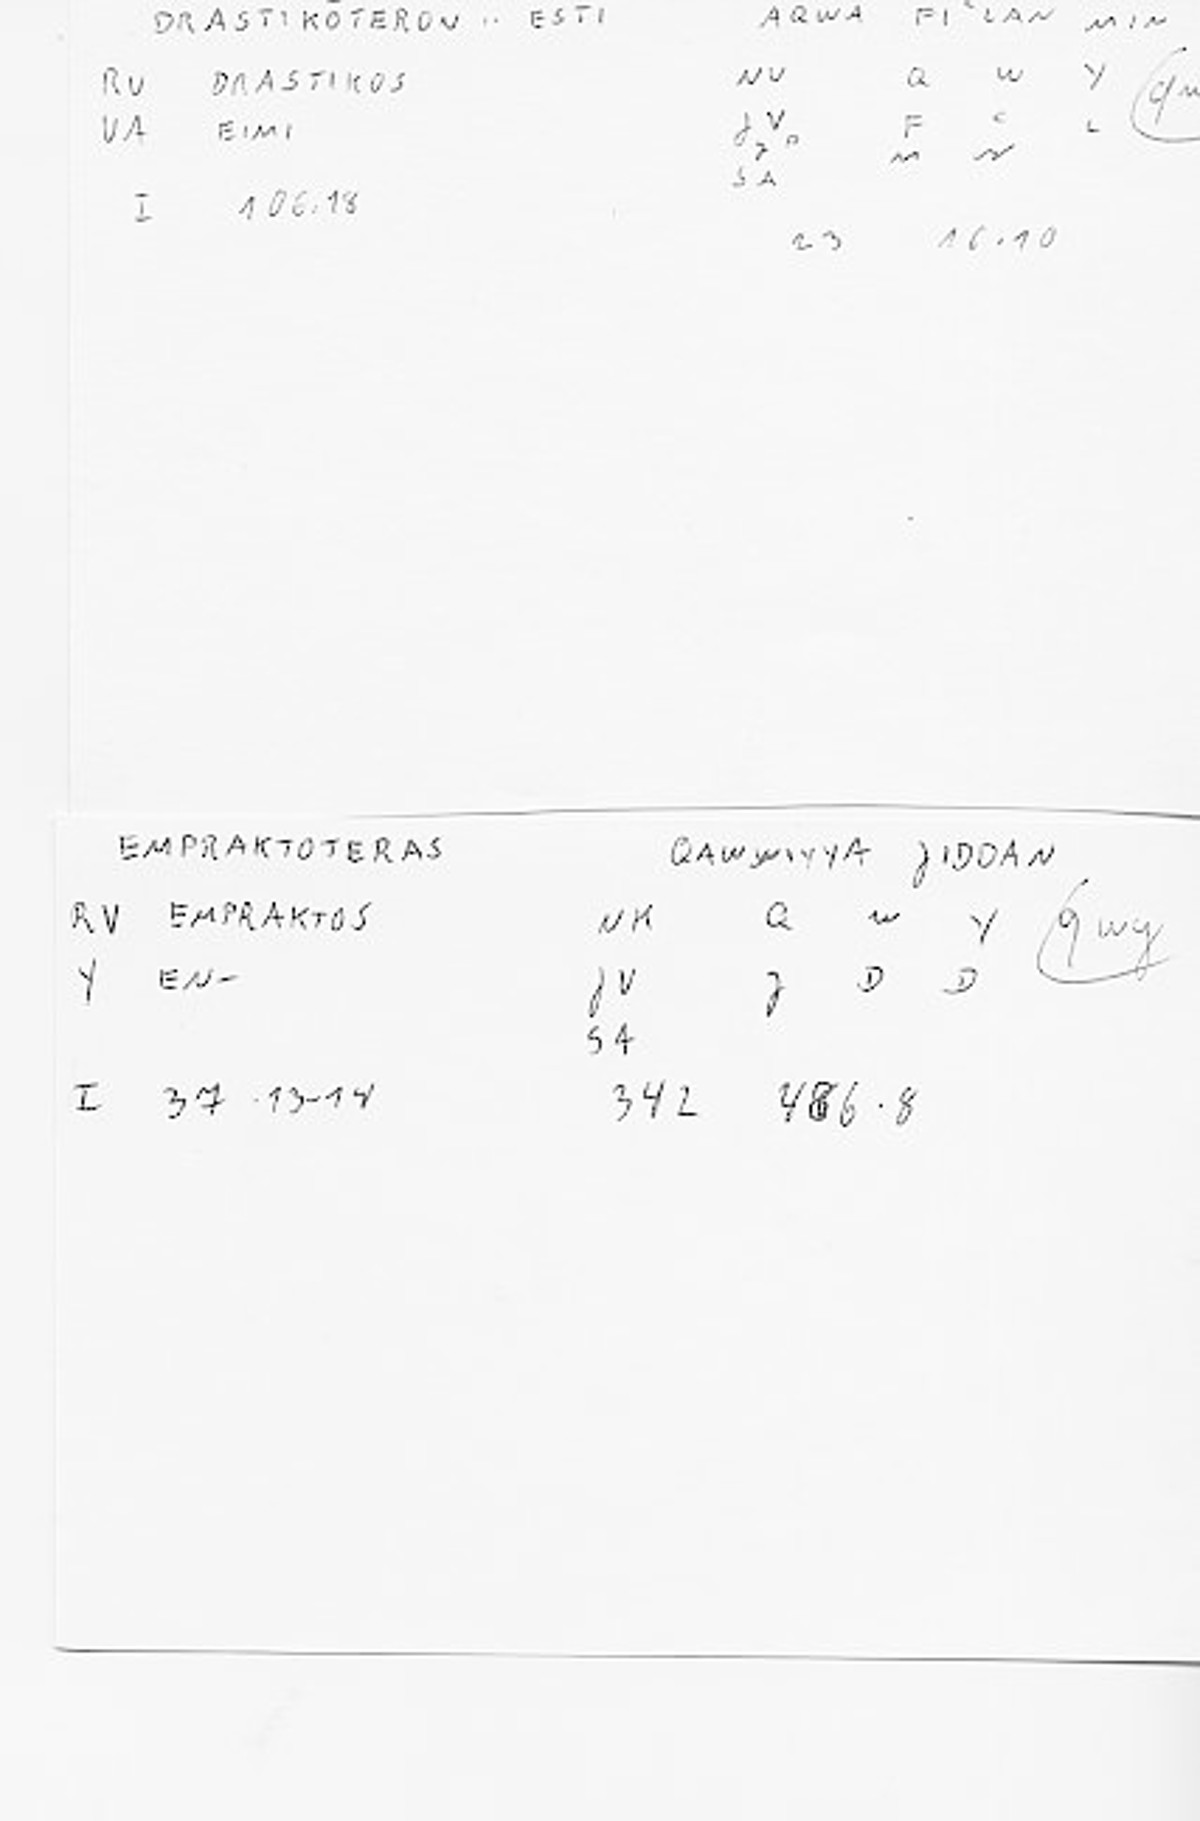 DRASTIKŌTERON .. ESTI AQWA FIʿLAN MIN
RV DRASTIKOS NV Q W Y
VA EIMI JV F ʿ L
M N
SA
I 106.18
23 16.10
EMPRAKTOTERAS QAWWIYYA JIDDAN
RV EMPRAKTOS NM Q W Y qwy
Y EN- JV J D D
SA
I 37.13-14 342 486.8